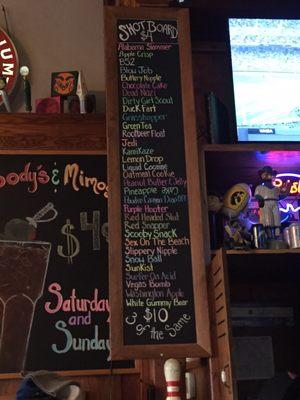 SHOT BOARD
$4
Alabama Slammer
Apple Crisp
B52
Blow Job
Buttery Nipple
Chocolate Cake
Dead Nazi
Dirty Girl Scout
Duck Fart
Grasshopper
Green Tea
Rootbeer Float
Jedi
Kamikaze
Lemon Drop
Liquid Cocaine
Oatmeal Cookie
Peanut Butter & Jelly
Pineapple
Purple Hooter
Red Headed Slut
Red Snapper
Scooby Snack
Sex On The Beach
Slippery Nipple
Snow Ball
SunKist
Surfer On Acid
Vegas Bomb
Washington Apple
White Gummy Bear
3 for $10
of the Same
oody's & Mimo
$4
Saturda
and
Sunda